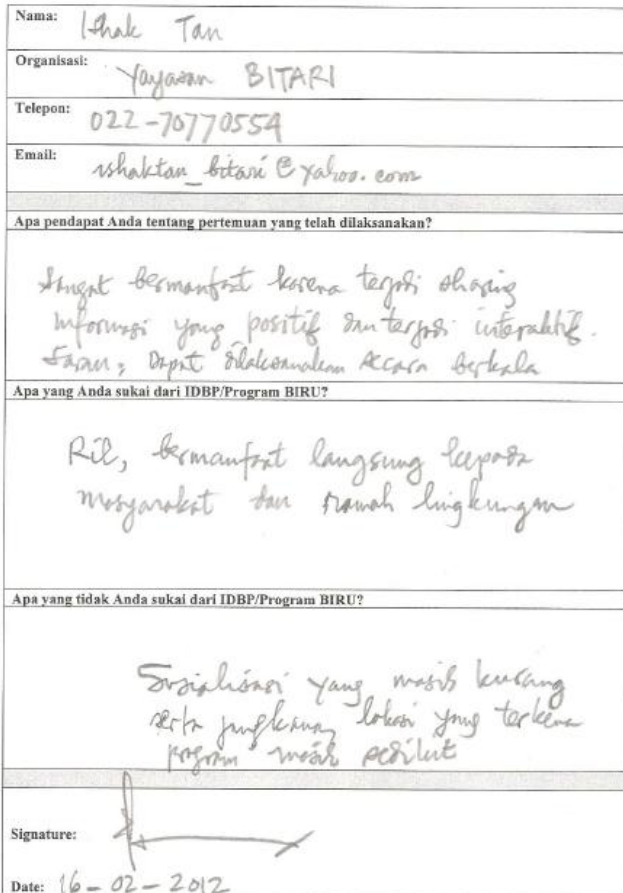 Nama: Ishak Tan
Organisasi: Yayasan BITARI
Telepon: 022-70770554
Email: ishaktan_bitari@yahoo.com
Apa pendapat Anda tentang pertemuan yang telah dilaksanakan?
Sangat bermanfaat karena terjadi sharing
informasi yang positif dan terjadi interaktif.
Saran: Dapat dilaksanakan secara berkala
Apa yang Anda sukai dari IDBP/Program BIRU?
Ril, bermanfaat langsung kepada
masyarakat dan ramah lingkungan
Apa yang tidak Anda sukai dari IDBP/Program BIRU?
Sosialisasi yang masih kurang
serta jangkauan lokasi yang terkena
program masih sedikit
Signature:
Date: 16-02-2012